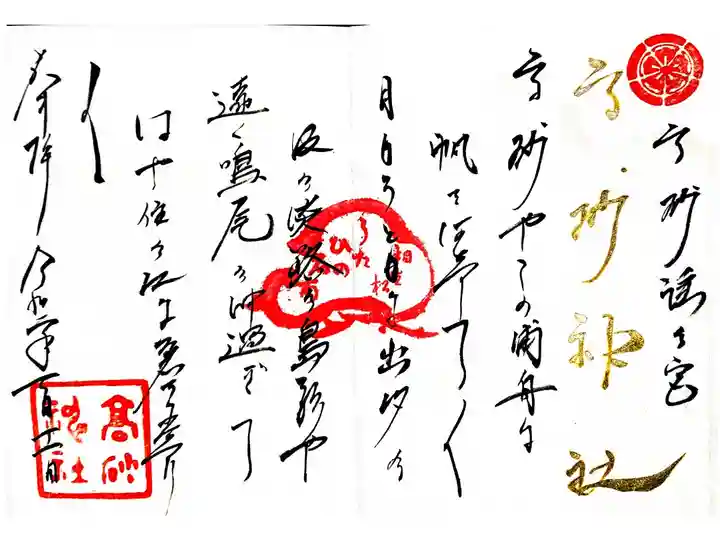 高砂謡の宮
高砂神社
高砂やこの浦舟に
帆を
月もろとも出汐の
波の淡路の島影や
遠く鳴尾の沖過ぎて
はや住の江に着
奉拝 令和 年 月十一日
相生松
高砂
神社